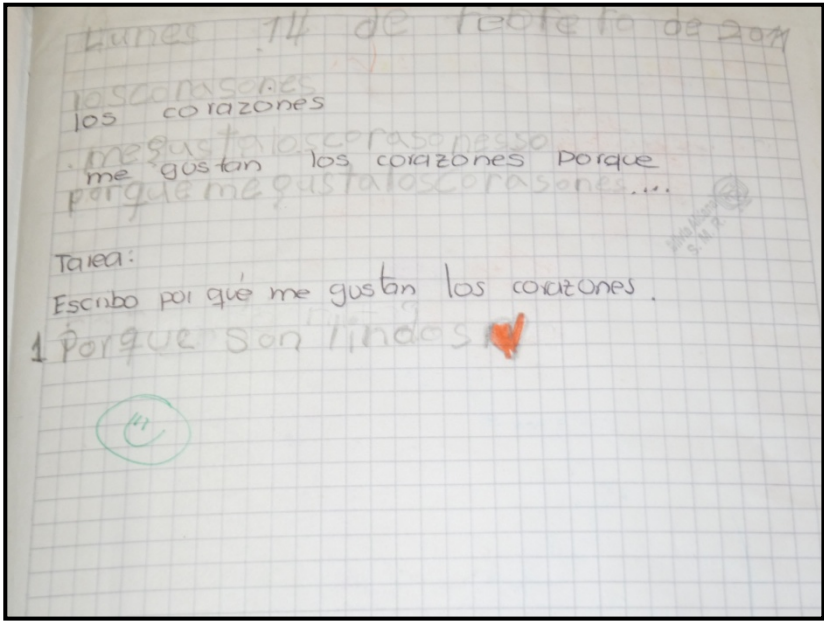 Lunes 14 de febrero de 2011
loscorasones
los corazones
.megustaloscorasonesso
me gustan los corazones porque
porquemegustaloscorasones....
Tarea:
Escribo por qué me gustan los corazones.
1 Porque son lindos